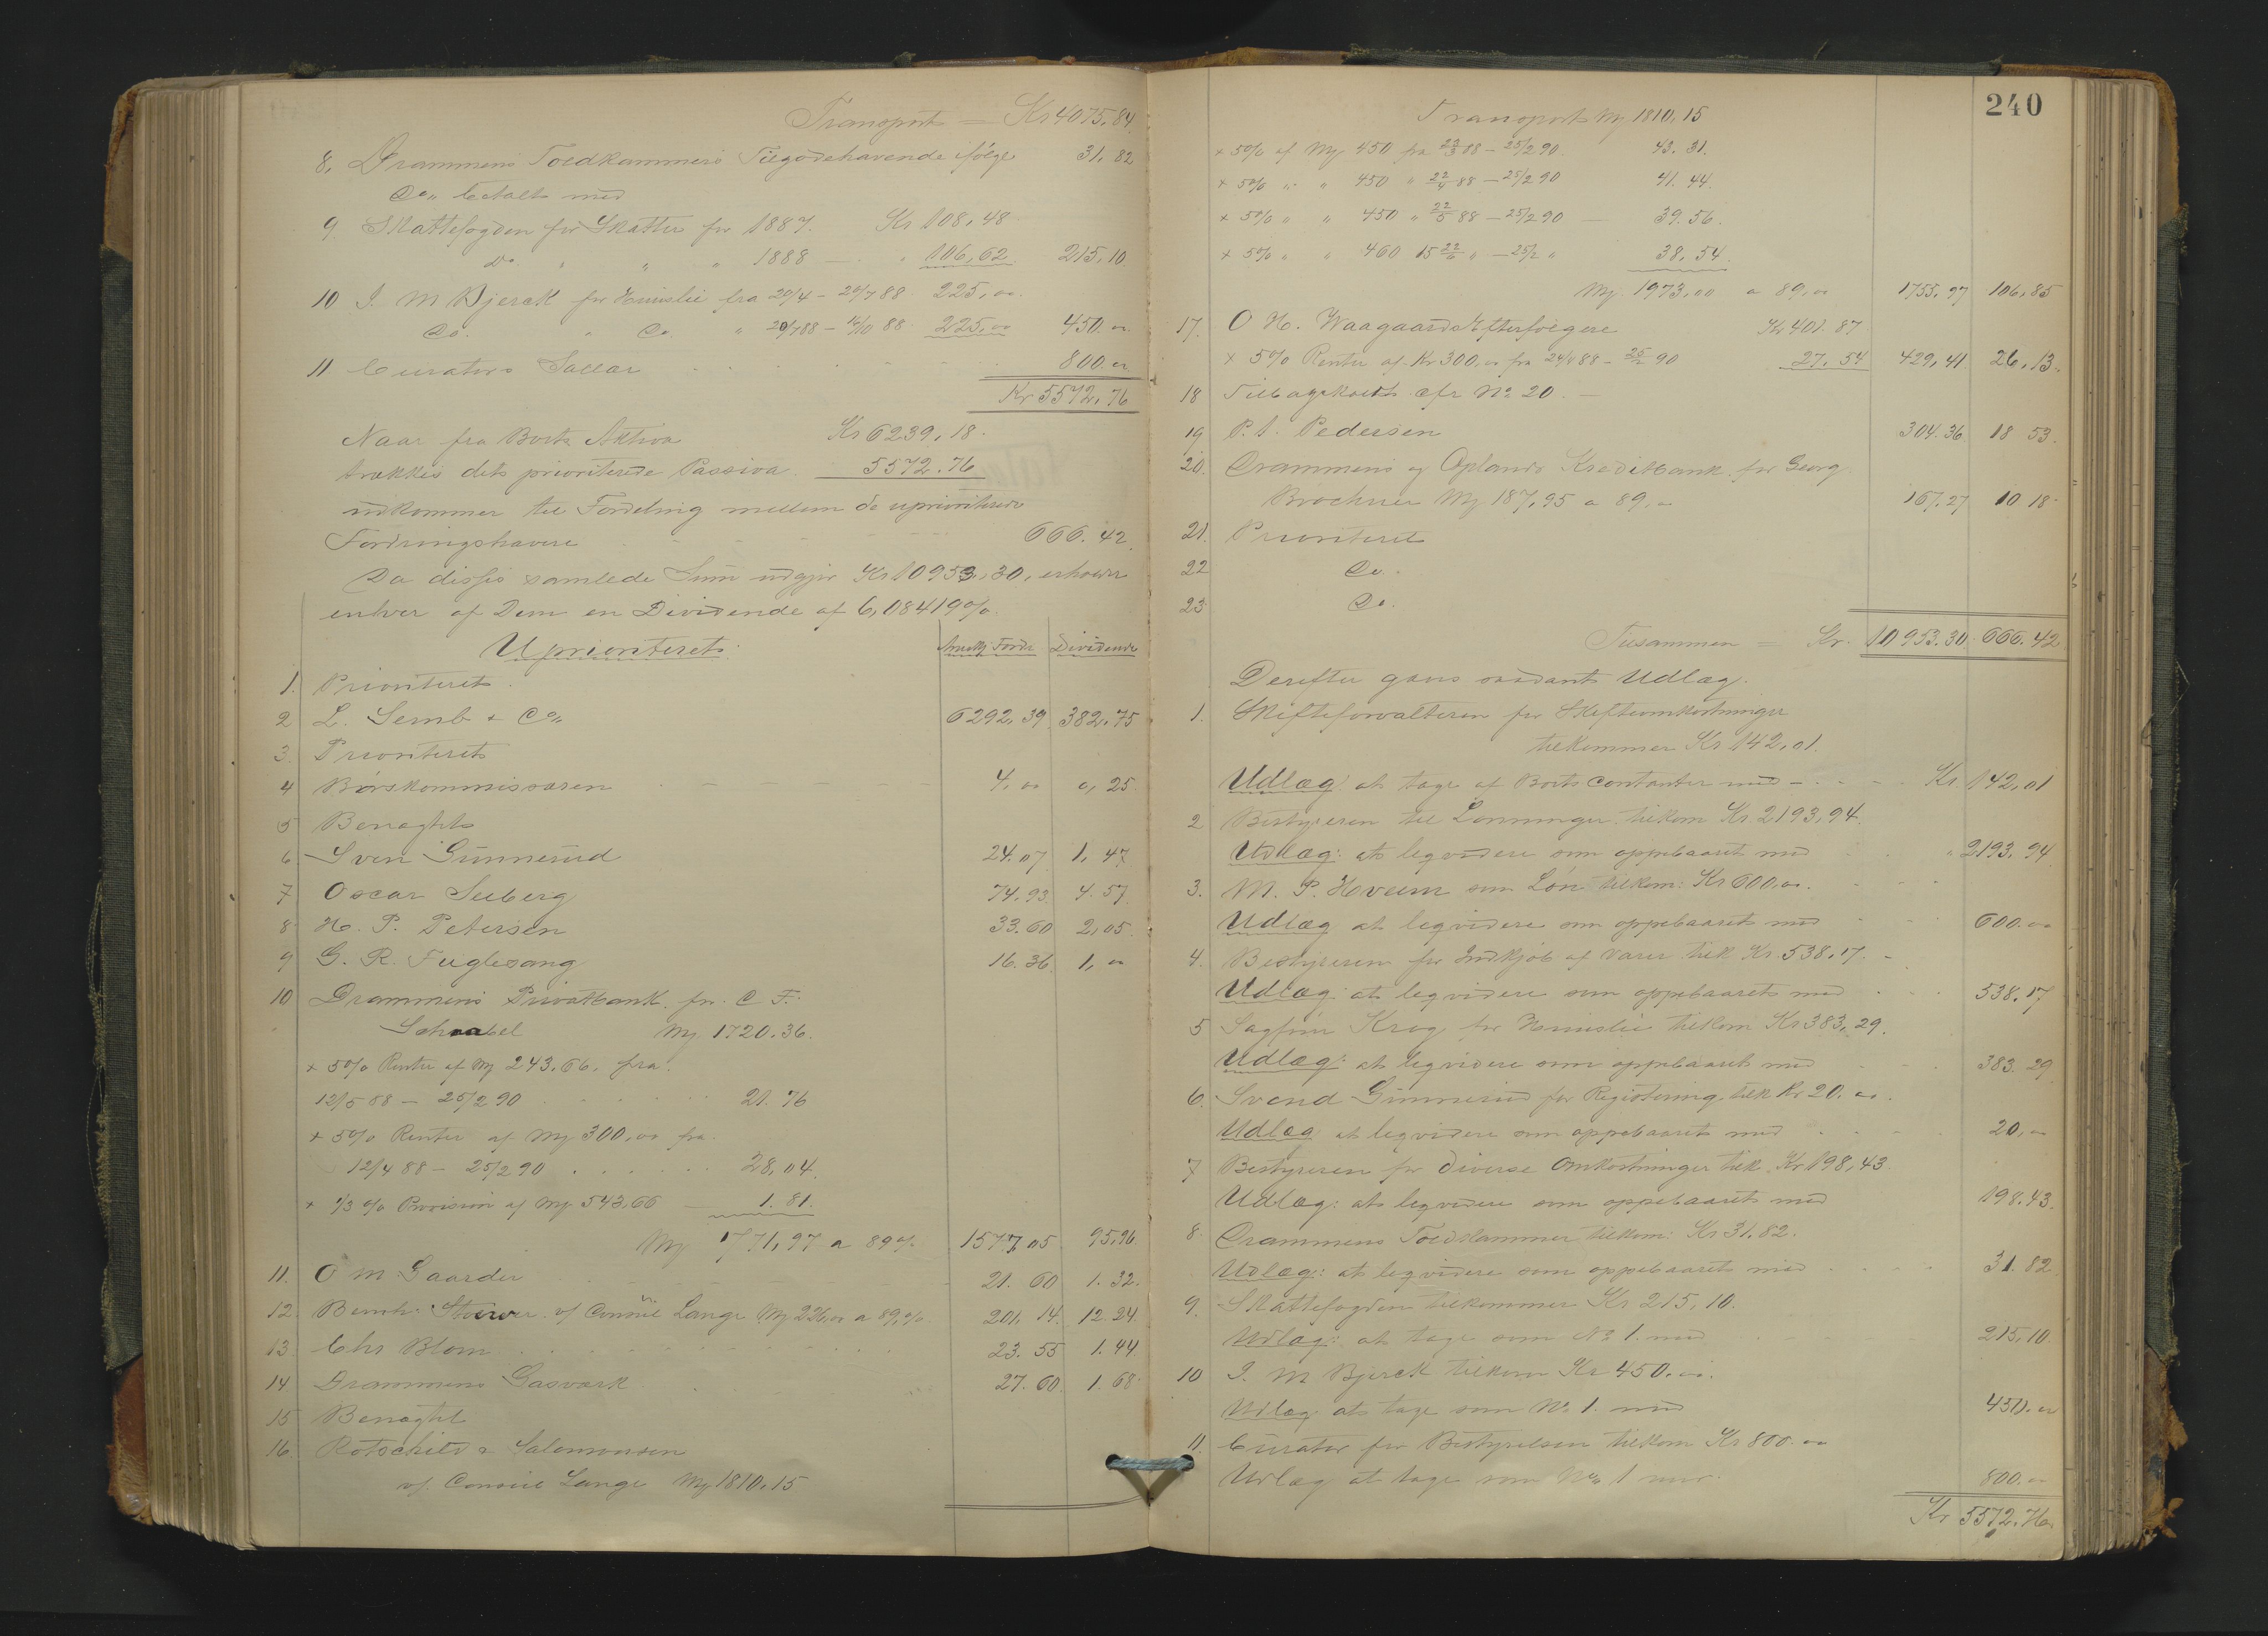 Transport = Kr 4075,84
8, Drammens Toldkammers Tilgodehavende ifölge 31,82
Do,, betalt med
9 Skattefogden for Skatter for 1887. Kr 108,48
Do " " " 1888 — " 106,62. 215,10
10 J. M Bjerck for Huusleie fra 20/4 - 20/7 88. 225,00.
Do. " Do. " 20/7 88 - 14/10 88 225,00 450.00
11 Curators Sallair 800.00
Kr 5572,76
Naar fra Boets Aktiva Kr 6239,18.
trækkes dets prioriterede Passiva. 5572.76
udkommer til Fordeling mellem de uprioriterede
Fordringshavere 666.42.
Da disses samlede Sum udgjør Kr 10953,30, erholder
enhver af Dem en Dividende af 6,08419%.
Uprioriteret: Anm. Fordr. Dividende
1. Prioriteret.
2 L. Semb & Co,, 6292,39 382,75
3. Prioriteret
4 Börskommissæren 4,00 0,25.
5 Benægtet
6 Sven Gunnerud 24.07 1,47.
7 Oscar Seeberg 74.93 4.57.
8 H. P. Petersen 33.60 2,05.
9 G. R. Fuglesang 16.36 1,00
10 Drammens Privatbank for C F.
Schnabel Mk 1720.36.
+ 5% Renter af Mk 243.66. fra.
12/5 88 — 25/2 90 21.76
+ 5% Renter af Mk 300,00 fra.
12/4 88 - 25/2 90 28,04.
+ 1/3 % Provision af Mk 543,66 1.81.
Mk 1771,97 a 89% 1577,05 95,96
11. O M Gaarder 21.60 1.32.
12. Bernh. Stoewer v/ Consul Lange Mk 226,00 a 89,% 201,14. 12.24.
13. Chr Blom 23.55 1.44.
14 Drammens Gasværk 27.60. 1.68.
15 Benægtet
16 Rotschild & Salomonsen
v/ Consul Lange Mk 1810,15
240
Transport Mk 1810,15
+ 5% af Mk 450 fra 22/3 88 - 25/2 90. 43.31.
+ 5% " " 450 " 22/4 88 - 25/2 90 41.44.
+ 5% " " 450 " 22/5 88 - 25/2 90 — 39.56.
+ 5% " " 460 15 22/6 " - 25/2 " 38,54.
Mk 1973,00 a 89,00 1755,97 106,85
17. O H. Waagaards Efterfölgere Kr 401.87.
+ 5% Renter af Kr 300,00 fra 24/4 88 - 25/2 90 27.54 429,41 26,13.
18 Tilbagekaldt cfr No 20. —
19 P. A. Pedersen 304.36 18 53.
20. Drammens og Oplands Kreditbank for Georg
Brochner Mk 187,95 a 89,00 167,27 10 18.
21. Prioriteret
22 Do.
23 Do.
Tilsammen = Kr. 10953.30 666.42
Derefter gjøres saadant Udlæg.
1. Skifteforvalteren for Skifteomkostninger
tilkommer Kr 142,01.
Udlæg: at tage af Boets Contanter med — Kr 142,01
2 Bestyreren til Lønninger tilkom Kr. 2193,94.
Udlæg: at legvidere som oppebaaret med " 2193,94
3. M. P. Hveem som Lön tilkom: Kr 600,00.
Udlæg at legvidere som oppebaaret med 600.00
4. Bestyreren for Indkjöb af Varer tilk Kr. 538.17. -
Udlæg: at legvidere som oppebaaret med 538.17
5 Sagförer Krog for Huusleie tilkom Kr 383,29.
Udlæg: at legvidere som oppebaaret med 383.29
6. Svend Gunnerud for Registering tilk Kr 20.00.
Udlæg at legvidere som oppebaaret med 20,00
7 Bestyreren for diverse Omkostninger tilk. Kr 198,43.
Udlæg: at legvidere som oppebaaret med 198.43.
8. Drammens Toldkammer tilkom: Kr 31.82.
Udlæg: at legvidere som oppebaaret med 31.82
9. Skattefogden tilkommer Kr 215,10.
Udlæg: at tage som No 1. med 215,10
10 J. M Bjerck tilkom Kr 450.00.
Udlæg at tage som No 1. med 450.00
11. Curator for Bestyrelsen tilkom Kr 800.00
Udlæg at tage som No 1 med. 800.00
Kr 5572.76.